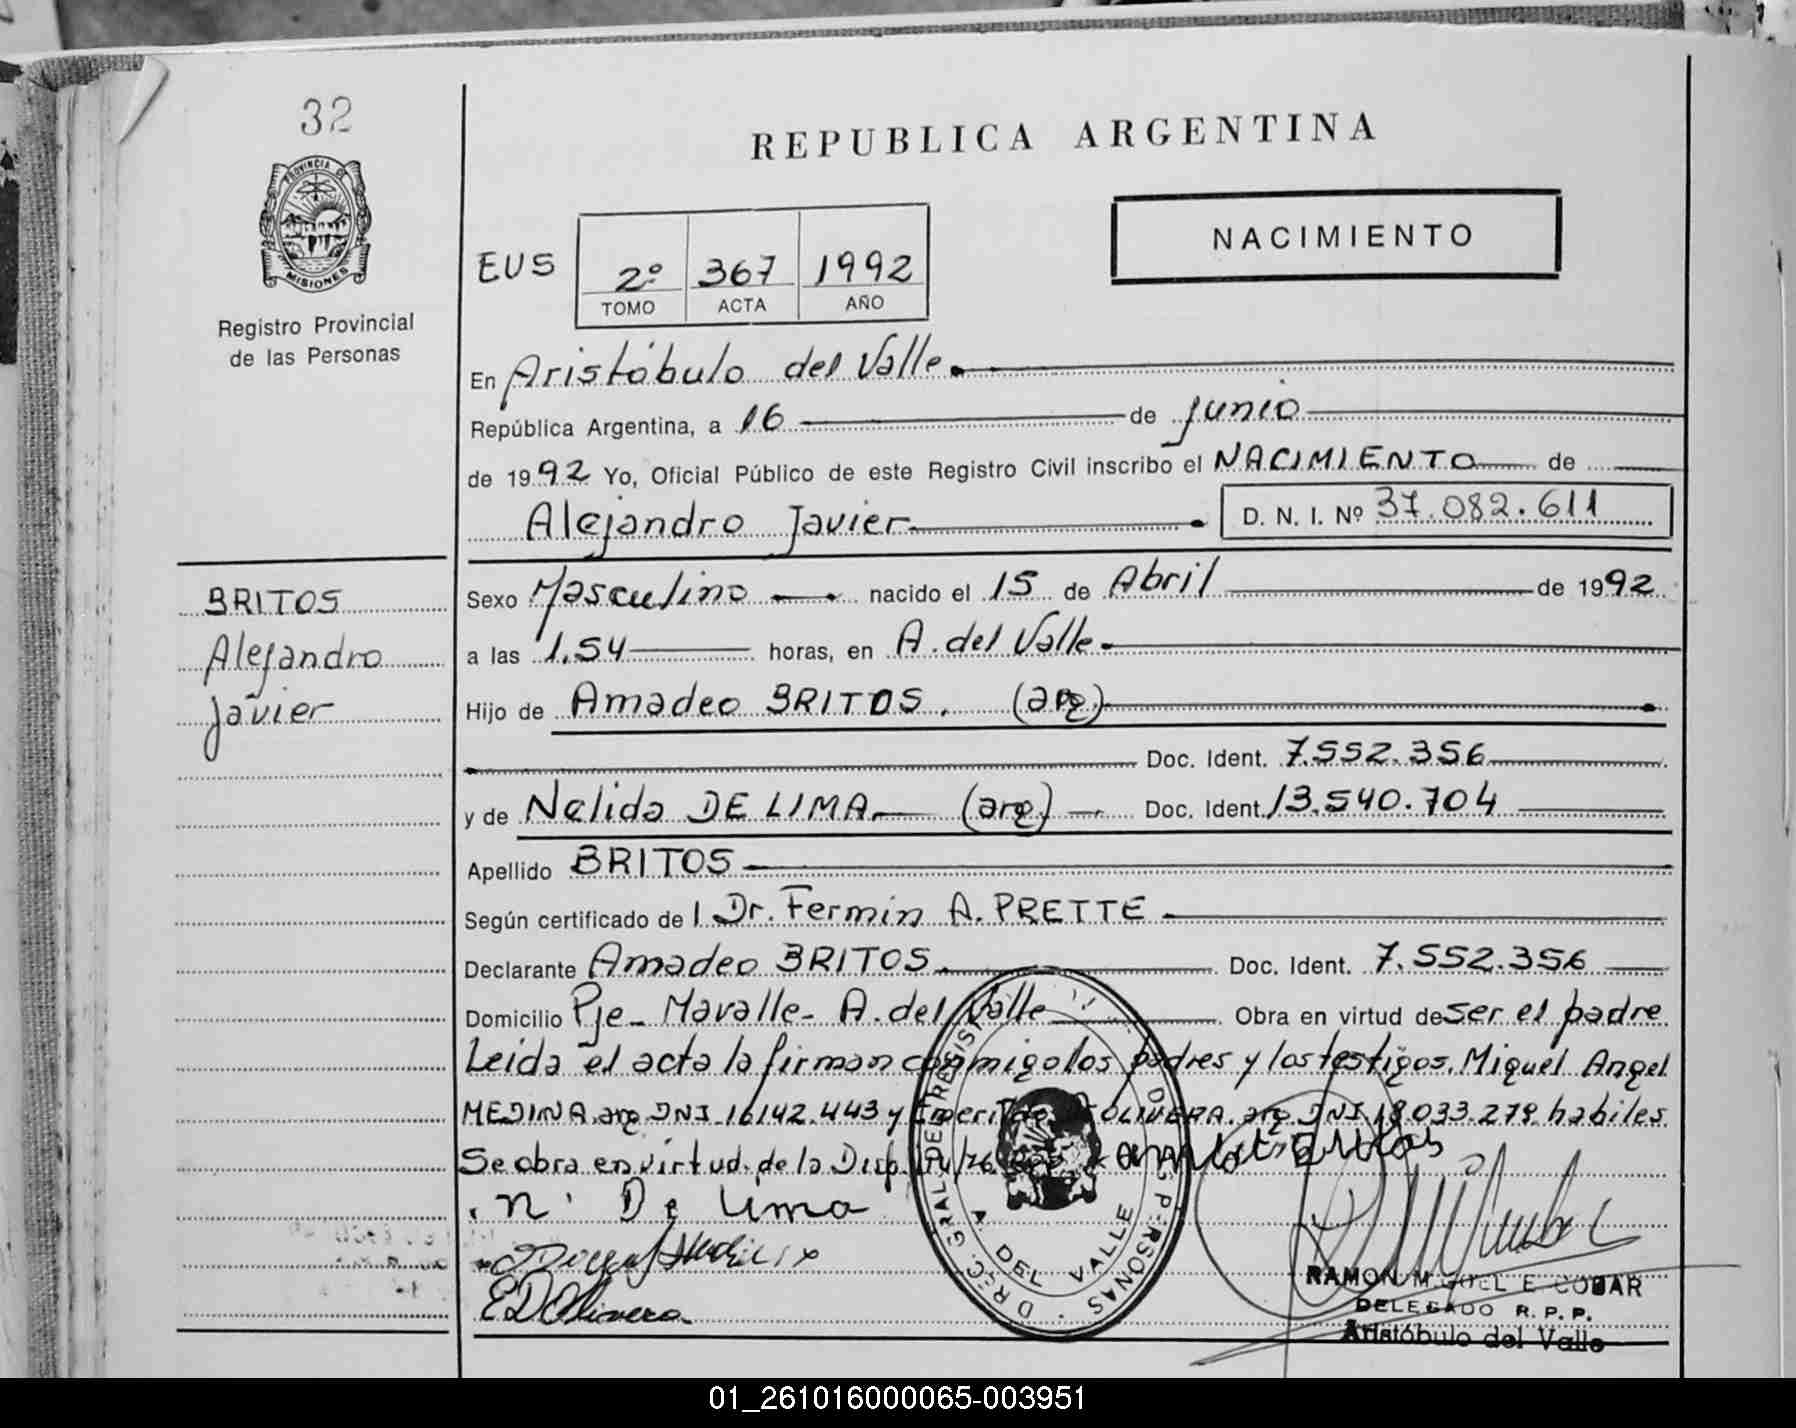 32
PROVINCIA DE
MISIONES
Registro Provincial
de las Personas
BRITOS
Alejandro
Javier
REPUBLICA ARGENTINA
NACIMIENTO
EUS
2º 367 1992
TOMO ACTA AÑO
En Aristóbulo del Valle.
República Argentina, a 16 de junio
de 1992 Yo, Oficial Público de este Registro Civil inscribo el NACIMIENTO de
Alejandro Javier D. N. I. Nº 37.082.611
Sexo Masculino nacido el 15 de Abril de 1992
a las 1.54 horas, en A. del Valle
Hijo de Amadeo BRITOS. (arg)
Doc. Ident. 7.552.356
y de Nelida DE LIMA (arg) Doc. Ident. 13.540.704
Apellido BRITOS
Según certificado de l Dr. Fermin A. PRETTE
Declarante Amadeo BRITOS. Doc. Ident. 7.552.356
Domicilio Pje- Mavalle- A. del Valle Obra en virtud de ser el padre
Leida el acta la firman conmigo los padres y los testigos. Miguel Angel
MEDINA. arg DNI 16142.443 y OLIVERA. arg. DNI 18.033.279. habiles
Se obra en virtud de la Disp.
N. De Lima
E D Olivera
DREC. GRAL. DEL REGIST DE LAS PERSONAS
A DEL VALLE
RAMON M GUEL E COBAR
DELEGADO R. P. P.
Aristóbulo del Valle
01_261016000065-003951